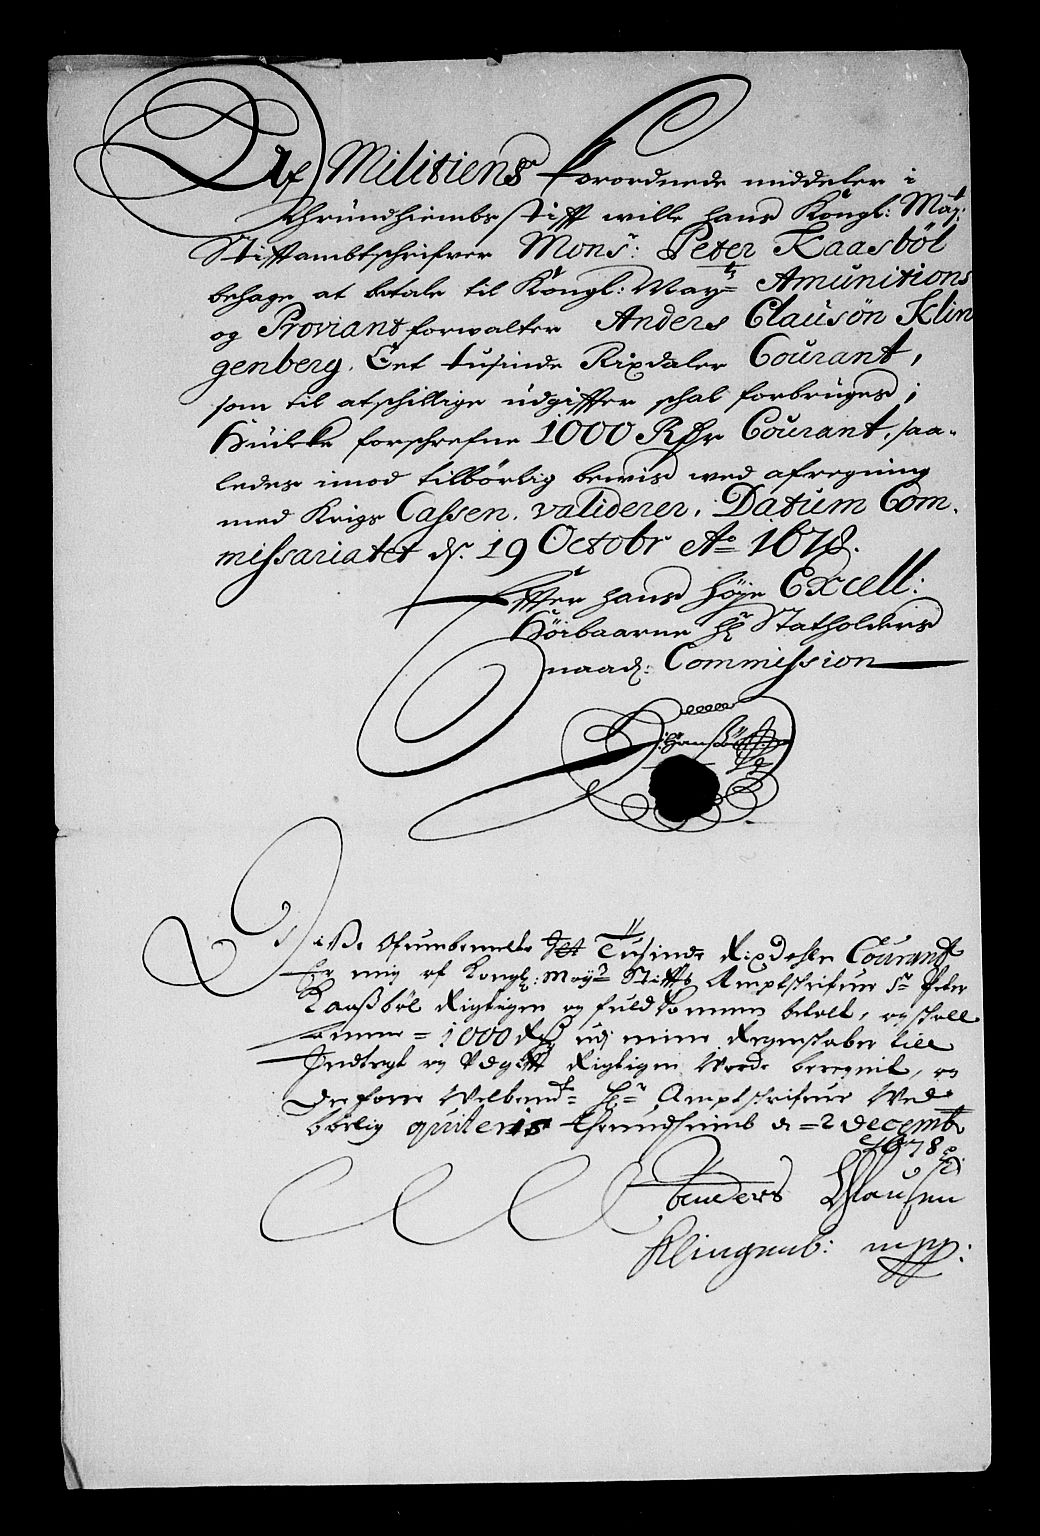 Af Militiens forordnede middeler i
Thrundhiembs Stifft wille hans Kongl: May:ts
Stifftambtschrifver Mons:r Peter Kaasböl
behage at betale til Kongl: May:ts Amunitions
og Proviantforwalter Anders Clausön Klin
genberg, Eet tusinde Rixdaler Courant,
som til atschillige udgiffter schal forbruges;
Huilcke forschrefne 1000 Rdr Courant, saa-
ledes imod tilbörlig bewis wed afregning
med Krigs Cassen, validerer, Datum Com-
missariatet ds. 19 Octobr Ao 1678.
Effter hans höye Excell:
Höibaarne Hr Statholders
naad: Commission
Hansö

Disse Ofvenbemelte Tusinde Rixdahler Courant
Er mig af Kongl: May:ts Stiffts Amptschrifuer Sr Peter
Kaasböl Rigtigen og fuldkommen betalt, og skall
samme = 1000 Rdr udj mine Regenskaber till
Indtegt og Udgifft Rigtigen Worde beregnit, og
Derforre Welbemte Hr Amptschrifuer Wed-
börlig quiteris Thrundhiemb d = 2 decemb:
Ao 1678
Anders Clausen
Klingenb: mpp: